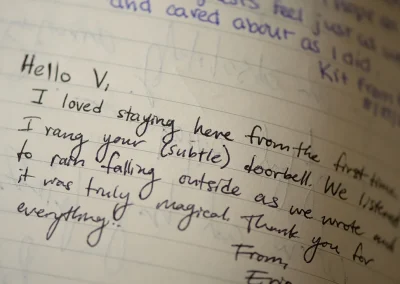 feel just as
and cared about as I did.
Kit from
Hello V,
I loved staying here from the first time
I rang your (subtle) doorbell. We listened
to rain falling outside as we wrote and
it was truly magical. Thank you for
everything..
From,